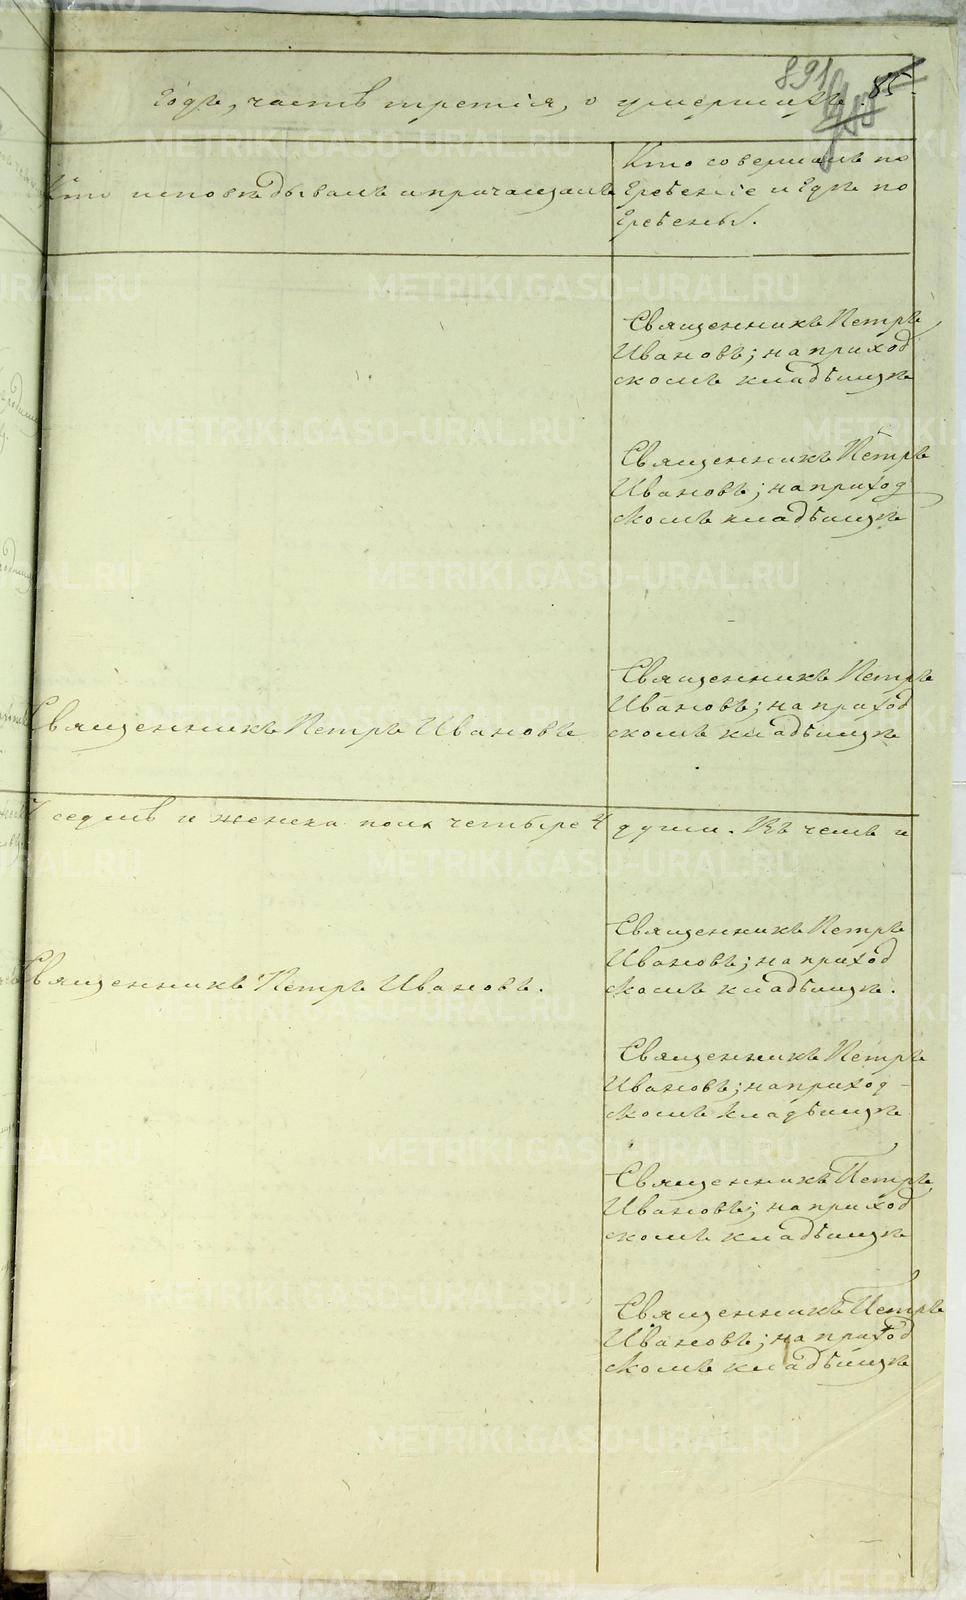 891
85.
годъ, часть третія, о умершихъ.
Кто исповѣдывалъ и причащалъ
Кто совершалъ по
гребеніе и гдѣ по
гребены.
Священникъ Петръ
Ивановъ; на приход
скомъ кладбищѣ
Священникъ Петръ
Ивановъ; на приход
скомъ кладбищѣ
Священникъ Петръ Ивановъ
Священникъ Петръ
Ивановъ; на приход
скомъ кладбищѣ
седмь и женска пола четыре 4 души. Въ чемъ и
Священникъ Петръ Ивановъ.
Священникъ Петръ
Ивановъ; на приход
скомъ кладбищѣ.
Священникъ Петръ
Ивановъ; на приход-
скомъ кладбищѣ
Священникъ Петръ
Ивановъ; на приход
скомъ кладбищѣ
Священникъ Петръ
Ивановъ; на приход
скомъ кладбищѣ
METRIKI.GASO-URAL.RU